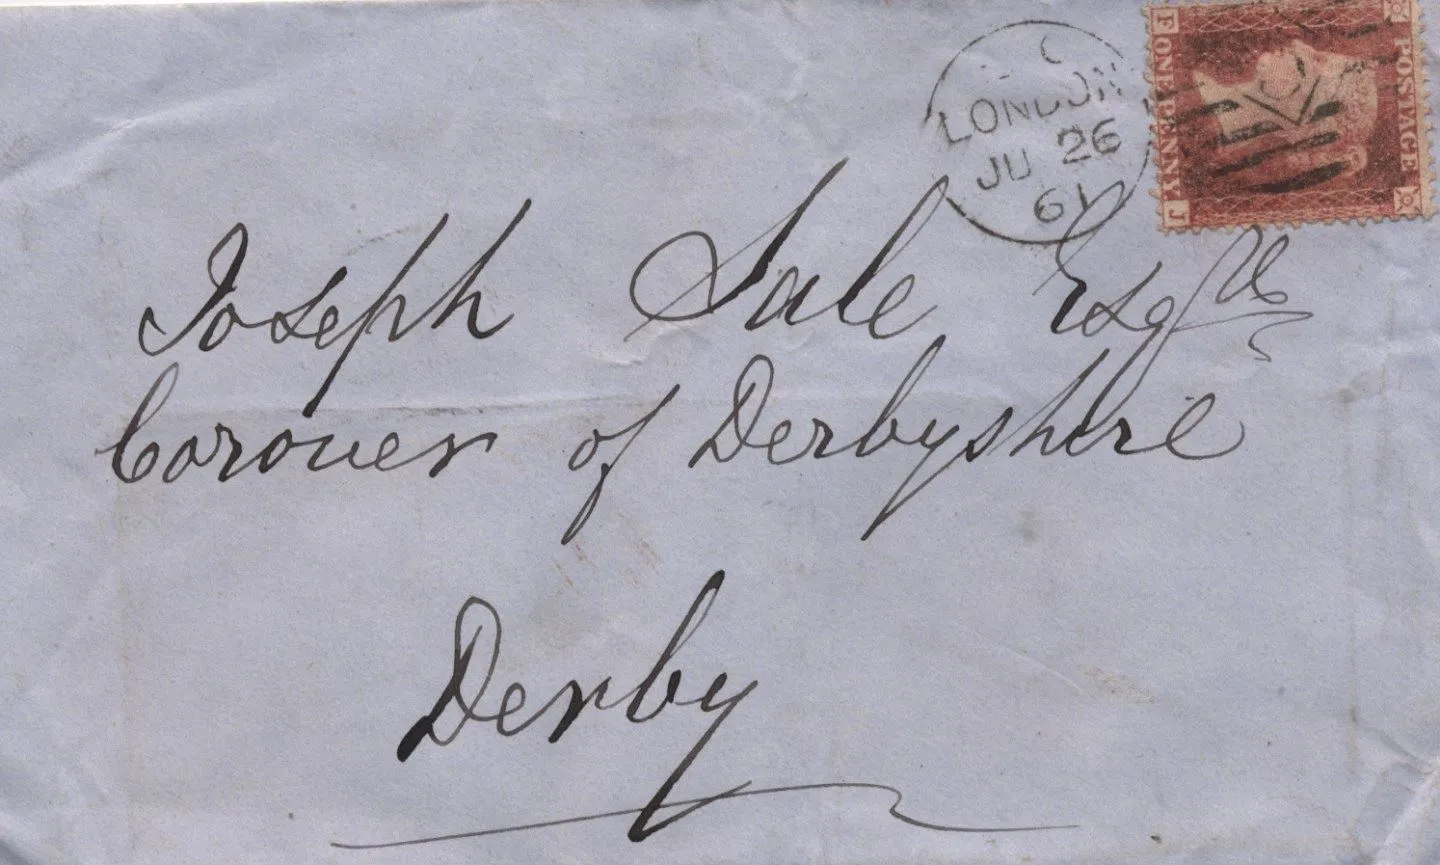 LONDON
JU 26
61
POSTAGE
ONE PENNY
F
J
Joseph Sale Esqre
Coroner of Derbyshire
Derby